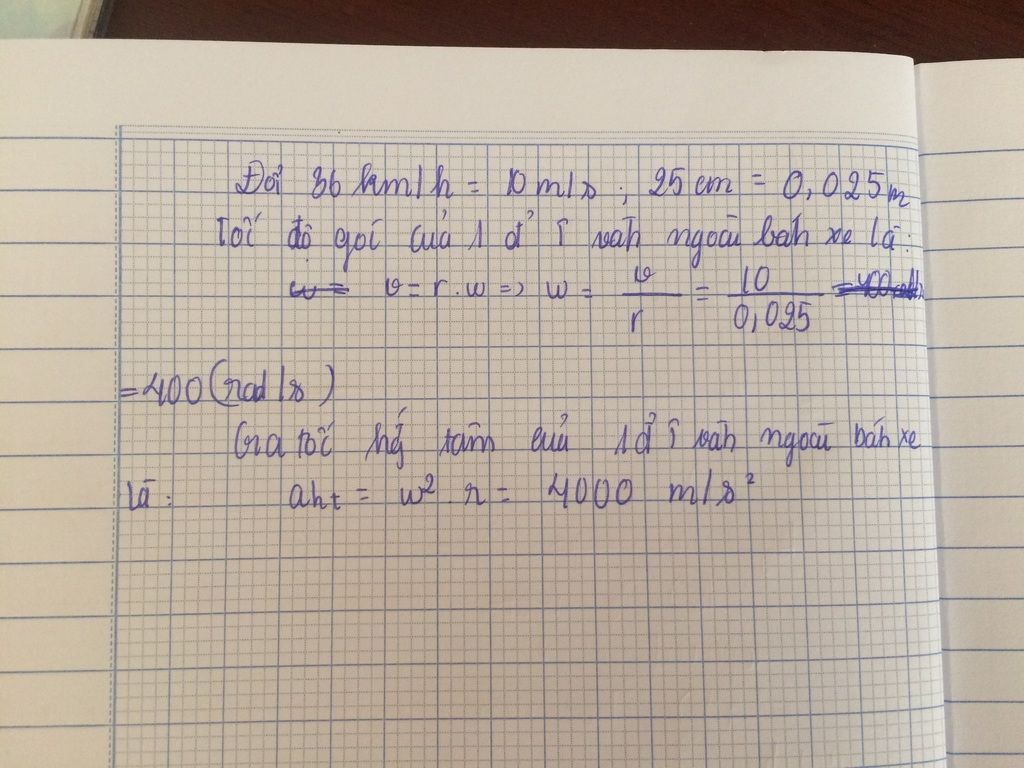 Đổi 36 km/h = 10 m/s ; 25 cm = 0,025 m
Tốc độ góc của 1 đ' ở vành ngoài bánh xe là:
v = r . w => w = v/r = 10/0,025
= 400 (rad/s)
Gia tốc hg tâm của 1 đ' ở vành ngoài bánh xe
là: aht = w² . r = 4000 m/s²